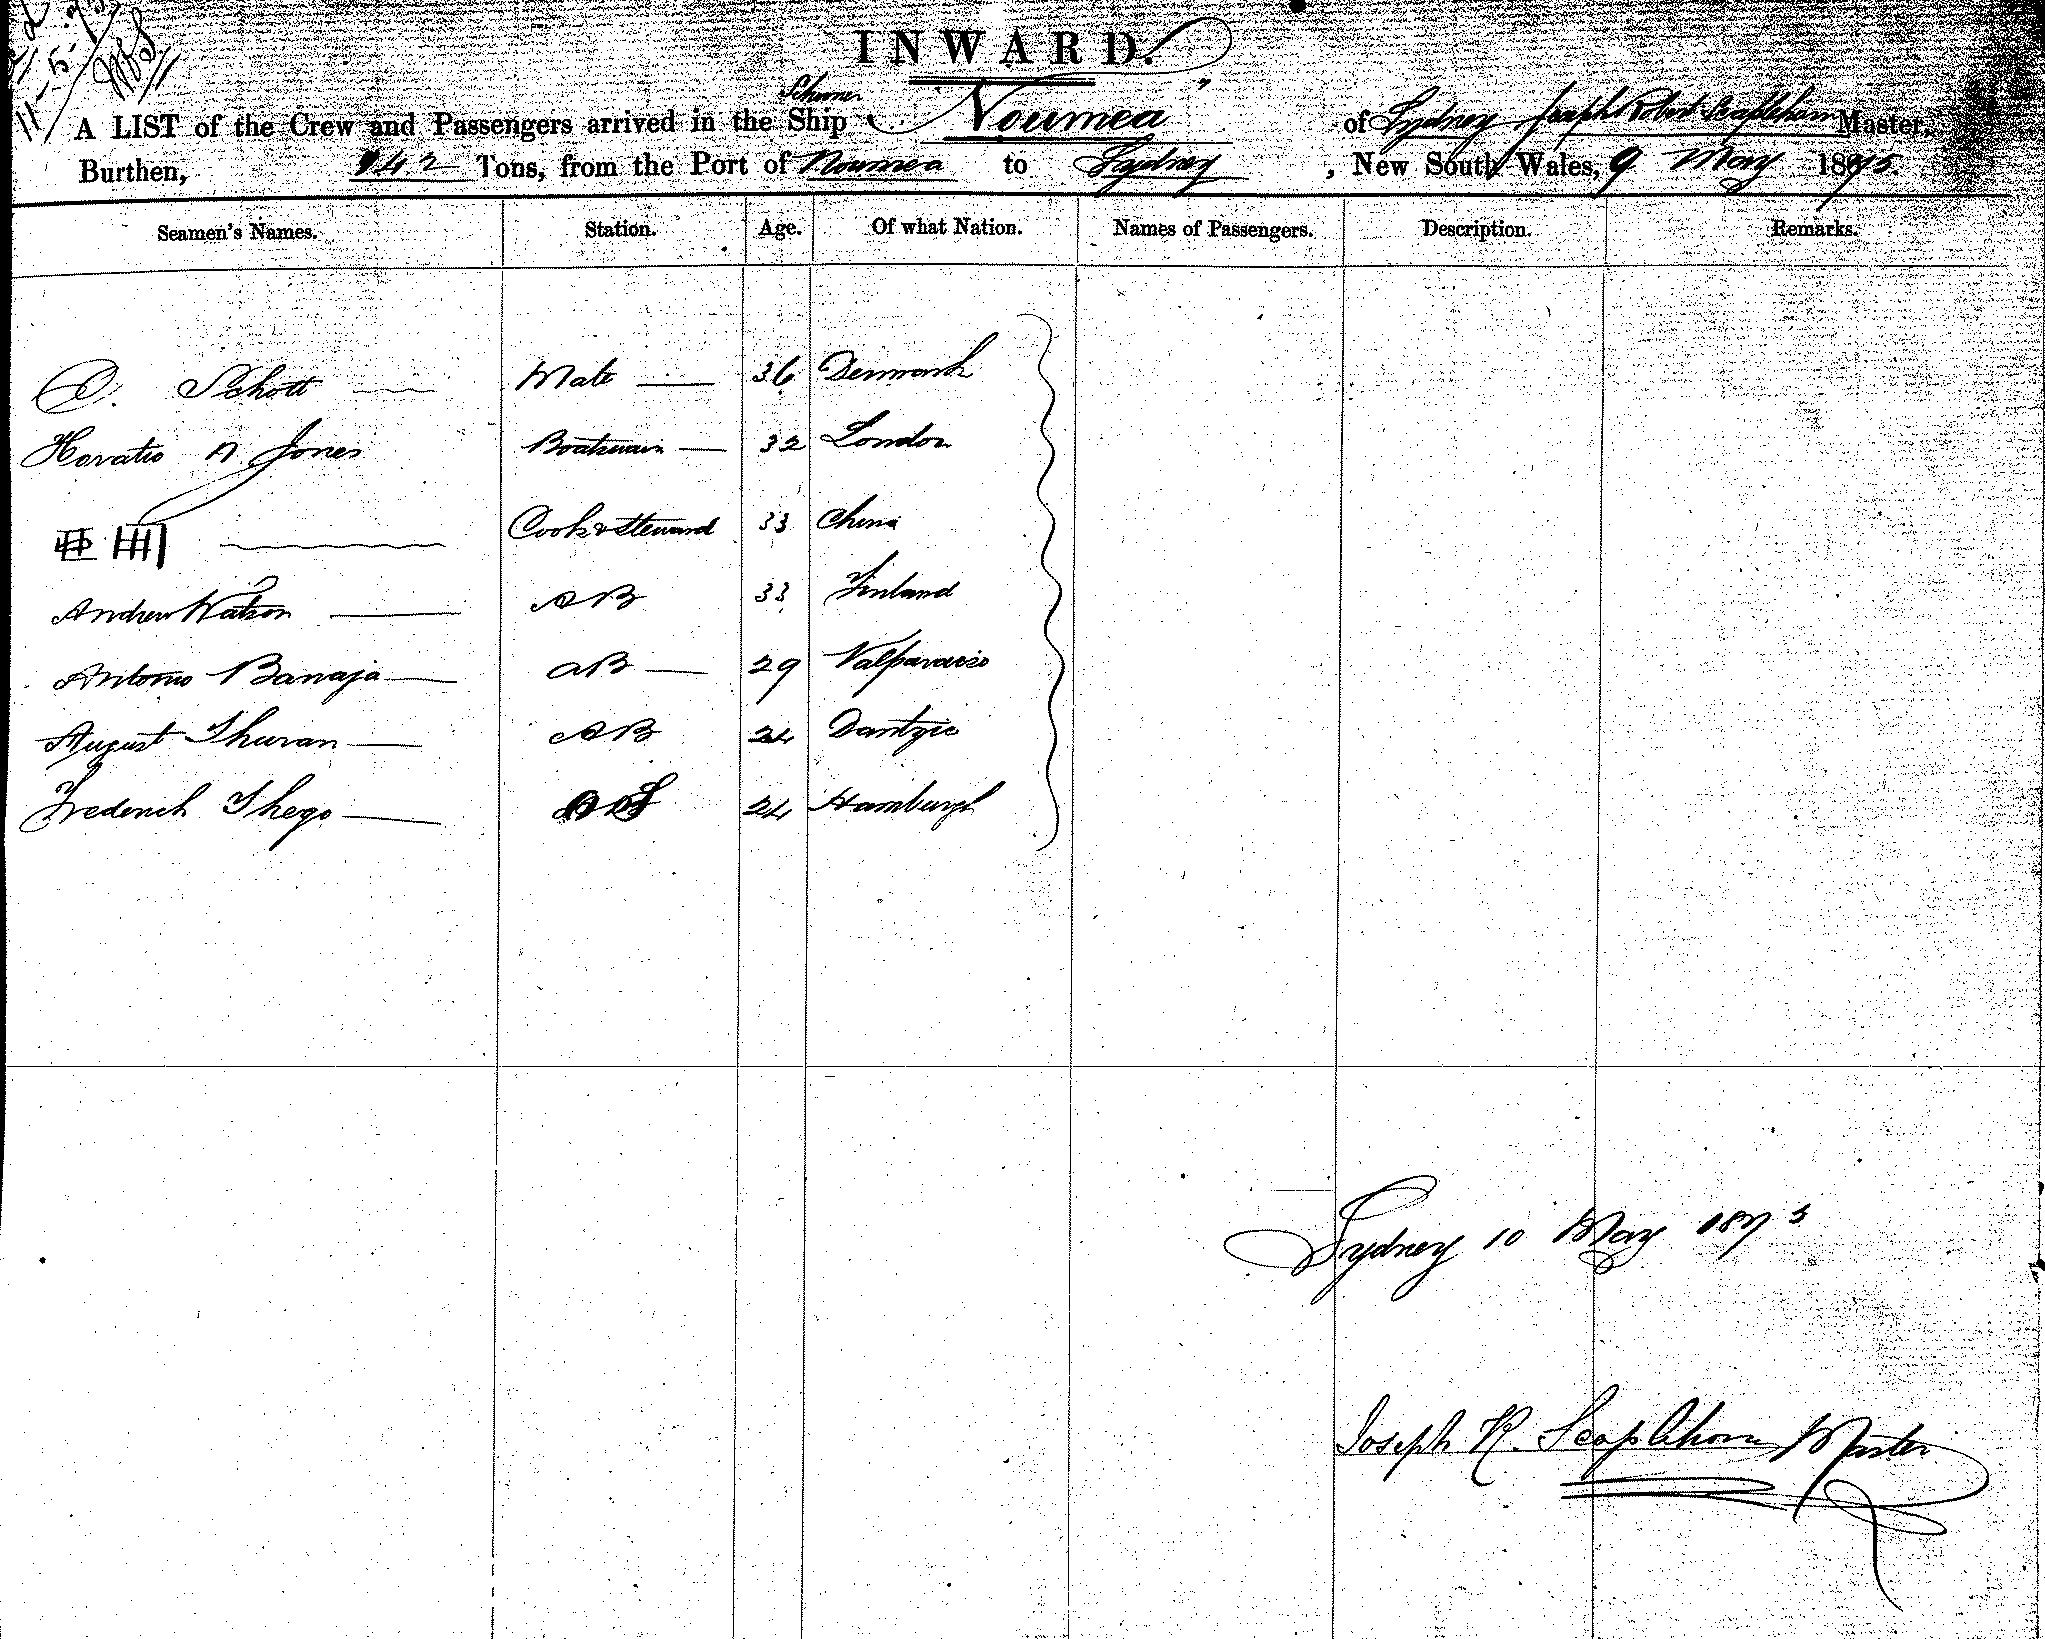 11-5-75
INWARD.
Schooner
A LIST of the Crew and Passengers arrived in the Ship "Noumea" of Sydney Joseph Robert Scaplehorn Master,
Burthen, 142 Tons, from the Port of Noumea to Sydney, New South Wales, 9 May 1875.
Seamen's Names. Station. Age. Of what Nation. Names of Passengers. Description. Remarks.
Schott Mate 36 Denmark
Horatio N Jones Boatswain 32 London
Cook & Steward 33 China
Andrew Watson AB 33 Finland
Antonio Banaja AB 29 Valparaiso
August Thuran AB 24 Dantzic
Frederich Thego OS 24 Hamburgh
Sydney 10 May 1875
Joseph R. Scaplehorn Master